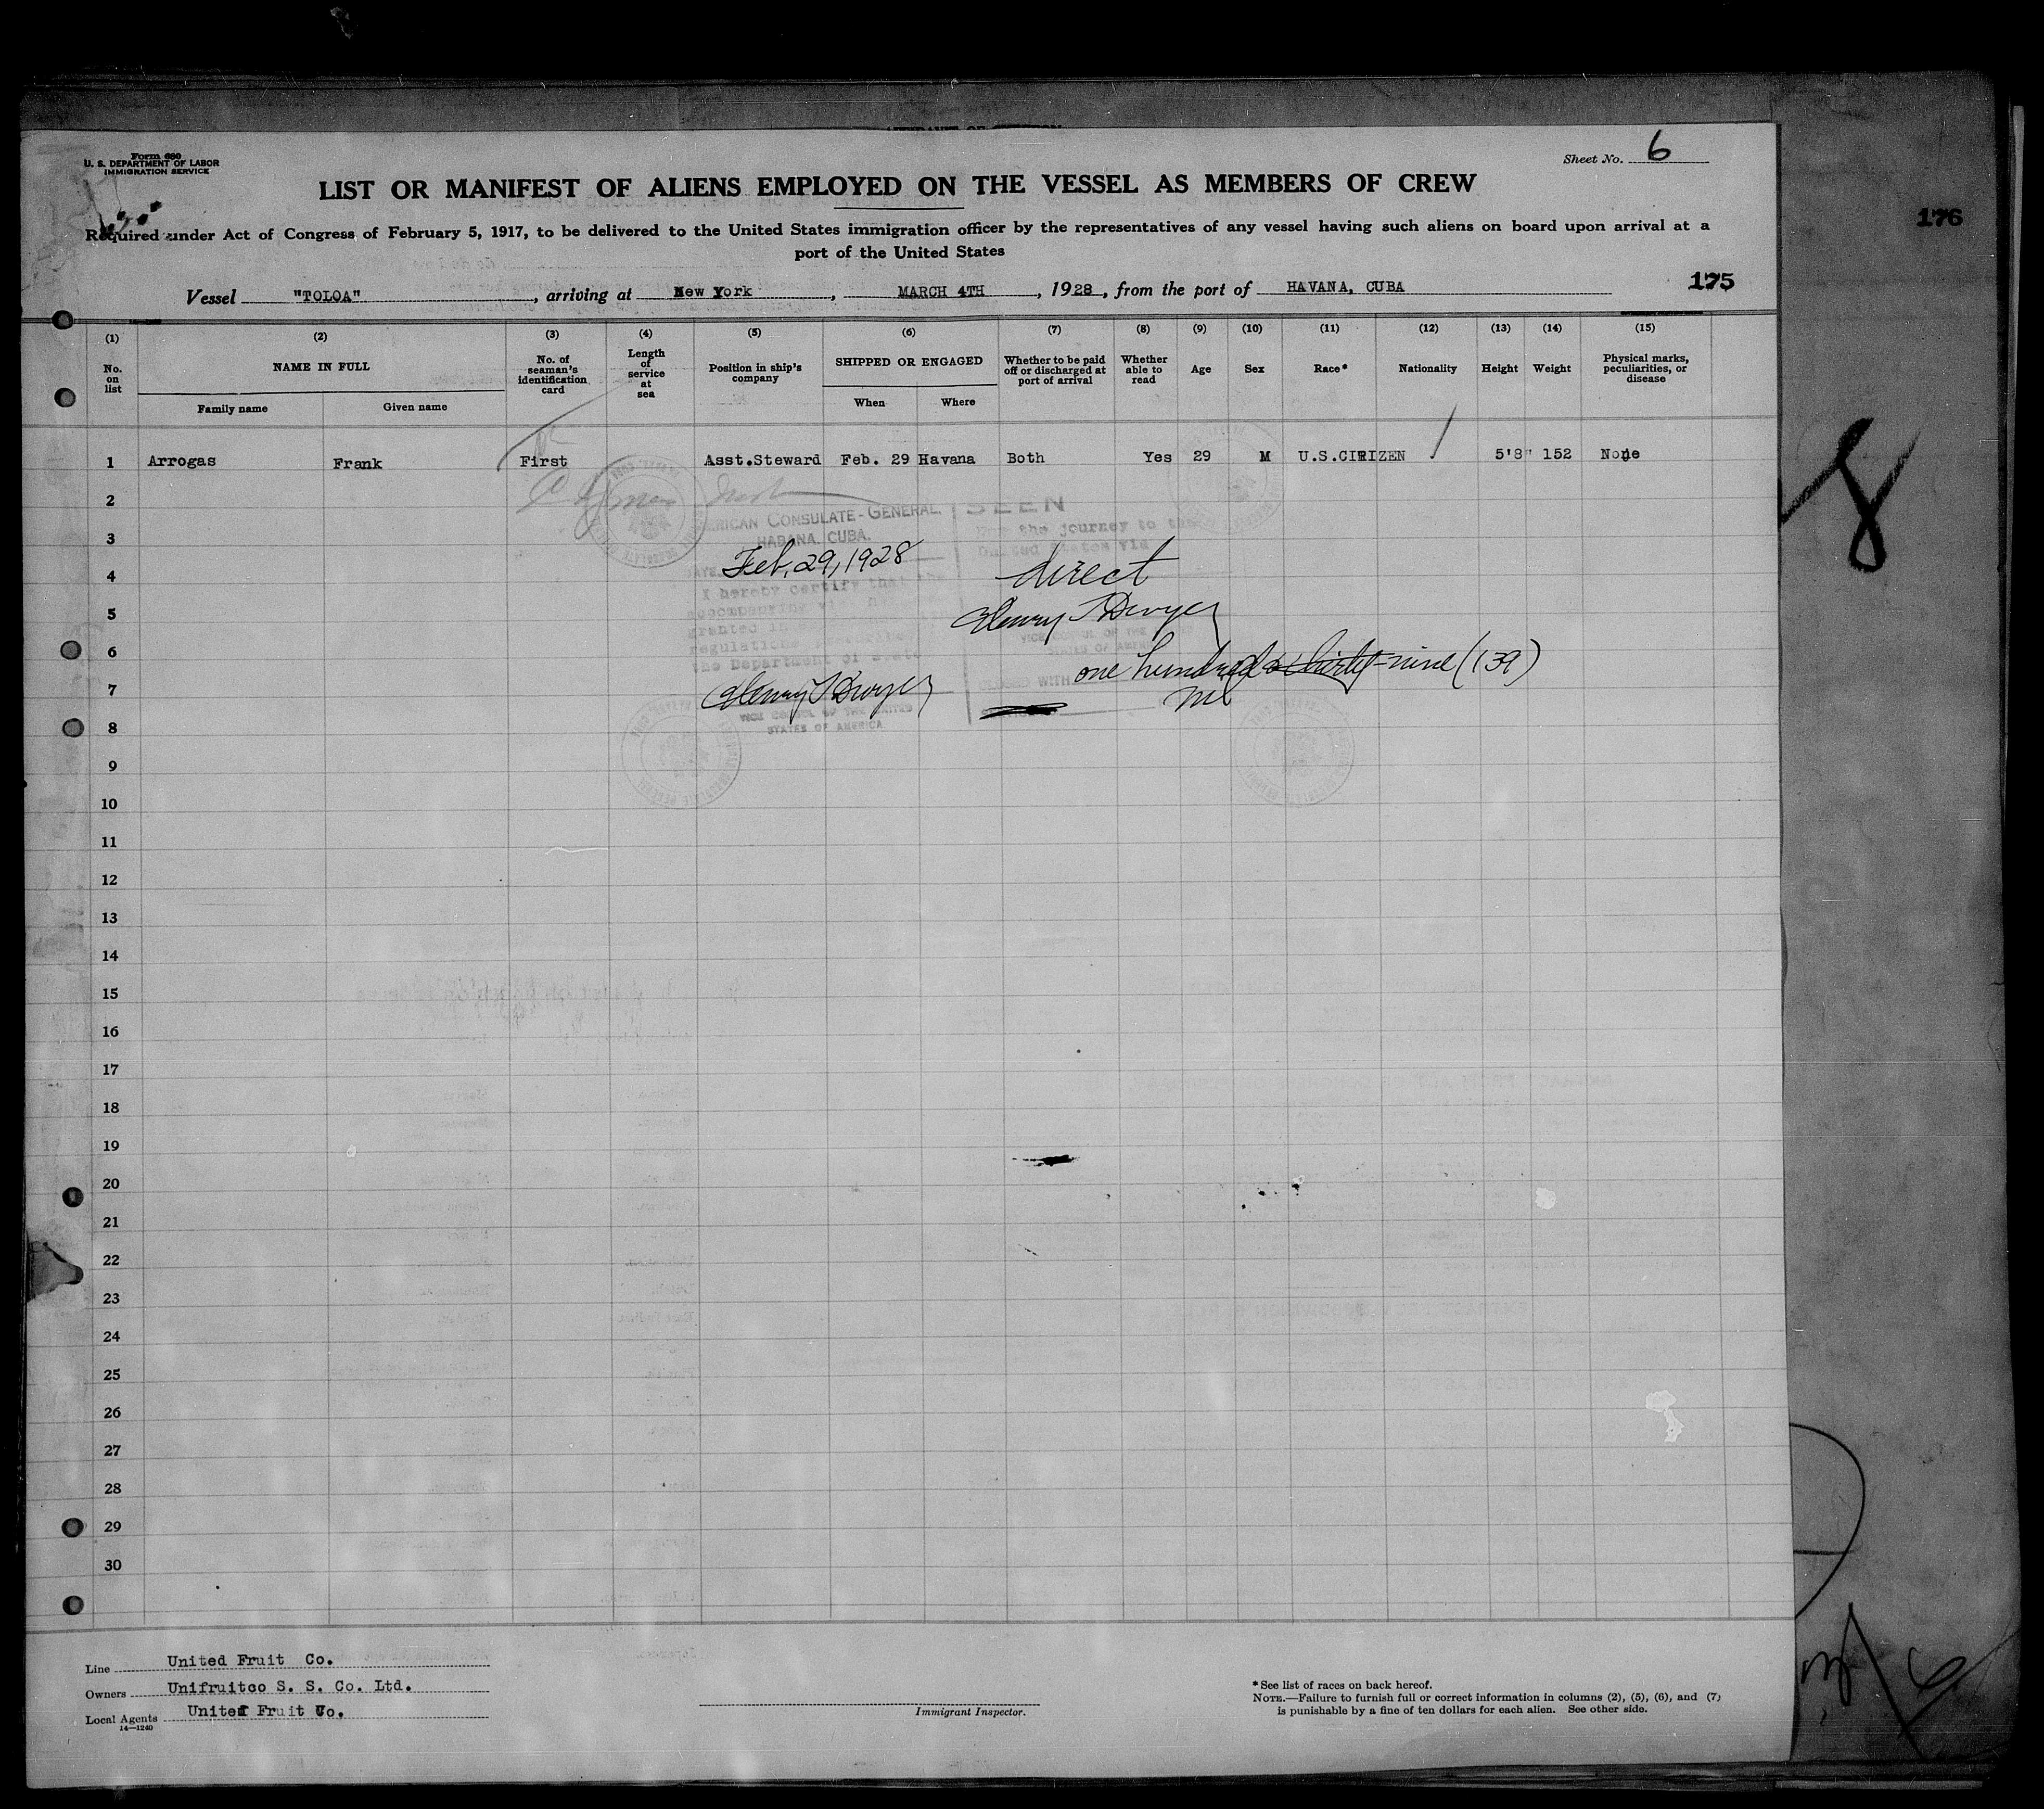 Form 680
U. S. DEPARTMENT OF LABOR
IMMIGRATION SERVICE
Sheet No. 6
LIST OR MANIFEST OF ALIENS EMPLOYED ON THE VESSEL AS MEMBERS OF CREW
176
Required under Act of Congress of February 5, 1917, to be delivered to the United States immigration officer by the representatives of any vessel having such aliens on board upon arrival at a
port of the United States
Vessel "TOLOA", arriving at New York, MARCH 4TH, 1928, from the port of HAVANA, CUBA
175
(1) (2) (3) (4) (5) (6) (7) (8) (9) (10) (11) (12) (13) (14) (15)
No. on list
NAME IN FULL
Family name
Given name
No. of seaman's identification card
Length of service at sea
Position in ship's company
SHIPPED OR ENGAGED
When
Where
Whether to be paid off or discharged at port of arrival
Whether able to read
Age
Sex
Race*
Nationality
Height
Weight
Physical marks, peculiarities, or disease
1 Arrogas Frank First Asst.Steward Feb. 29 Havana Both Yes 29 M U.S.CITIZEN 5'8" 152 None
2
SEEN
AMERICAN CONSULATE-GENERAL.
For the journey to the
3
HABANA, CUBA.
United States via
Feb, 29, 1928
direct
4
I hereby certify that the
5
accompanying
Henry T Dwyer
granted in
VICE CONSUL OF THE
6
regulations
STATES OF AMERICA
the Department of State
one hundred & thirty-nine (139)
7
CLOSED WITH
Henry T Dwyer
VICE CONSUL OF THE UNITED
8
STATES OF AMERICA
9
10
11
12
13
14
15
16
17
18
19
20
21
22
23
24
25
26
27
28
29
30
8
Line United Fruit Co.
Owners Unifruitco S. S. Co. Ltd.
Local Agents United Fruit Co.
14—1240
Immigrant Inspector.
* See list of races on back hereof.
NOTE.—Failure to furnish full or correct information in columns (2), (5), (6), and (7)
is punishable by a fine of ten dollars for each alien. See other side.